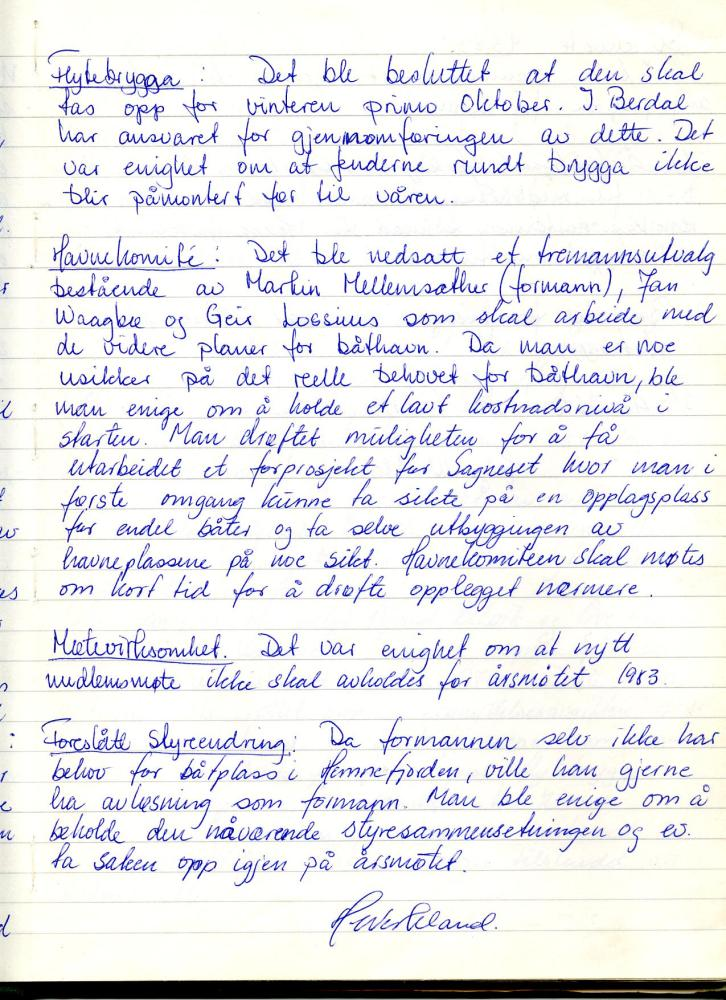 Flytebrygga : Det ble besluttet at den skal
tas opp for vinteren primo Oktober. J. Berdal
har ansvaret for gjennomføringen av dette. Det
var enighet om at fenderne rundt brygga ikke
blir påmontert før til våren.
Havnekomité : Det ble nedsatt et tremannsutvalg
bestående av Martin Mellemsæther (formann), Jan
Waagbø og Geir Lossius som skal arbeide med
de videre planer for båthavn. Da man er noe
usikker på det reelle behovet for båthavn, ble
man enige om å holde et lavt kostnadsnivå i
starten. Man drøftet muligheten for å få
utarbeidet et forprosjekt for Sagneset hvor man i
første omgang kunne ta sikte på en opplagsplass
for endel båter og ta selve utbyggingen av
havneplassene på noe sikt. Havnekomiteen skal møtes
om kort tid for å drøfte opplegget nærmere.
Møtevirksomhet. Det var enighet om at nytt
medlemsmøte ikke skal avholdes før årsmøtet 1983.
Foreslåtte Styreendring : Da formannen selv ikke har
behov for båtplass i Hemnefjorden, ville han gjerne
ha avløsning som formann. Man ble enige om å
beholde den nåværende styresammensetningen og ev.
ta saken opp igjen på årsmøtet.